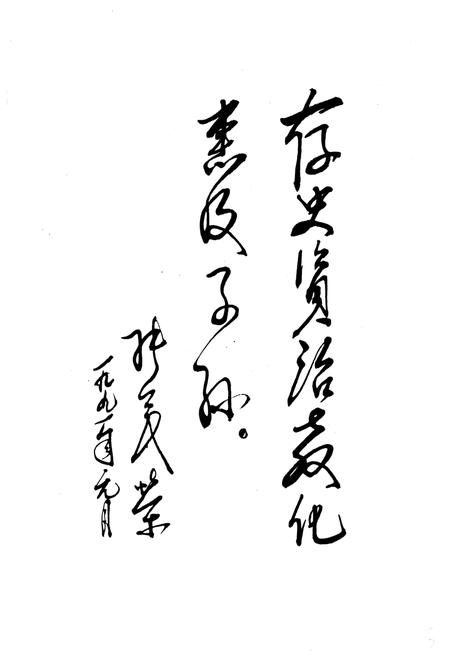 存史资治教化
惠及子孙。
张美荣
一九九一年元月